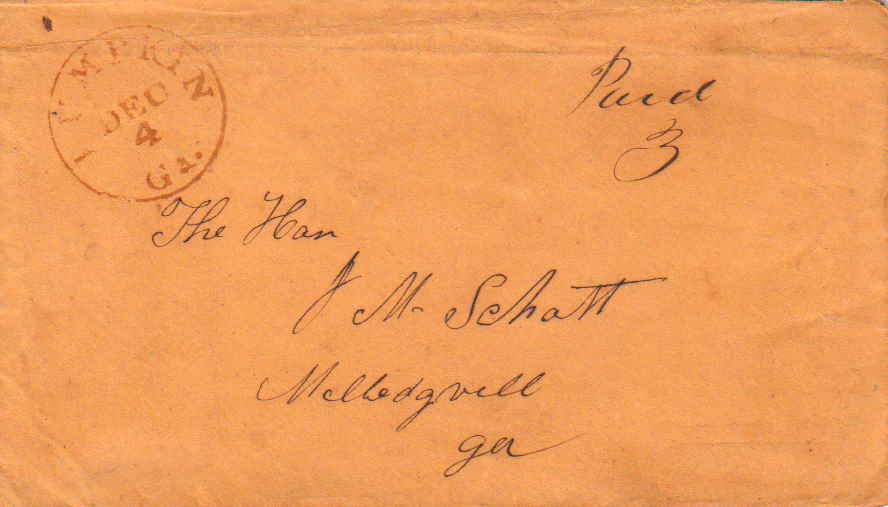 LUMPKIN
DEC
4
Ga.
Paid
3
The Hon
J M. Schatt
Melledgvill
ga